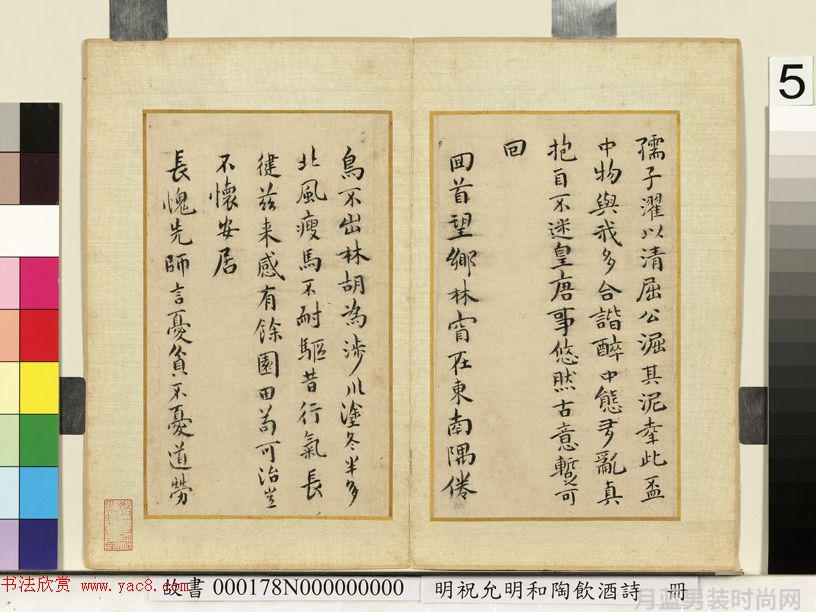 孺子濯以清屈公淈其泥牽此盃
中物與我多合諧醉中態多亂真
抱自不迷皇唐事悠然古意暫可
回
回首望鄉林窅在東南隅倦
鳥不出林胡為涉川塗冬半多
北風瘦馬不耐驅昔行氣長
健茲来感有餘園田苟可治豈
不懷安居
長愧先師言憂貧不憂道勞
5
书法欣赏 www.yac8.com
故書 000178N000000000 明祝允明和陶飲酒詩 冊
月蓝男装时尚网